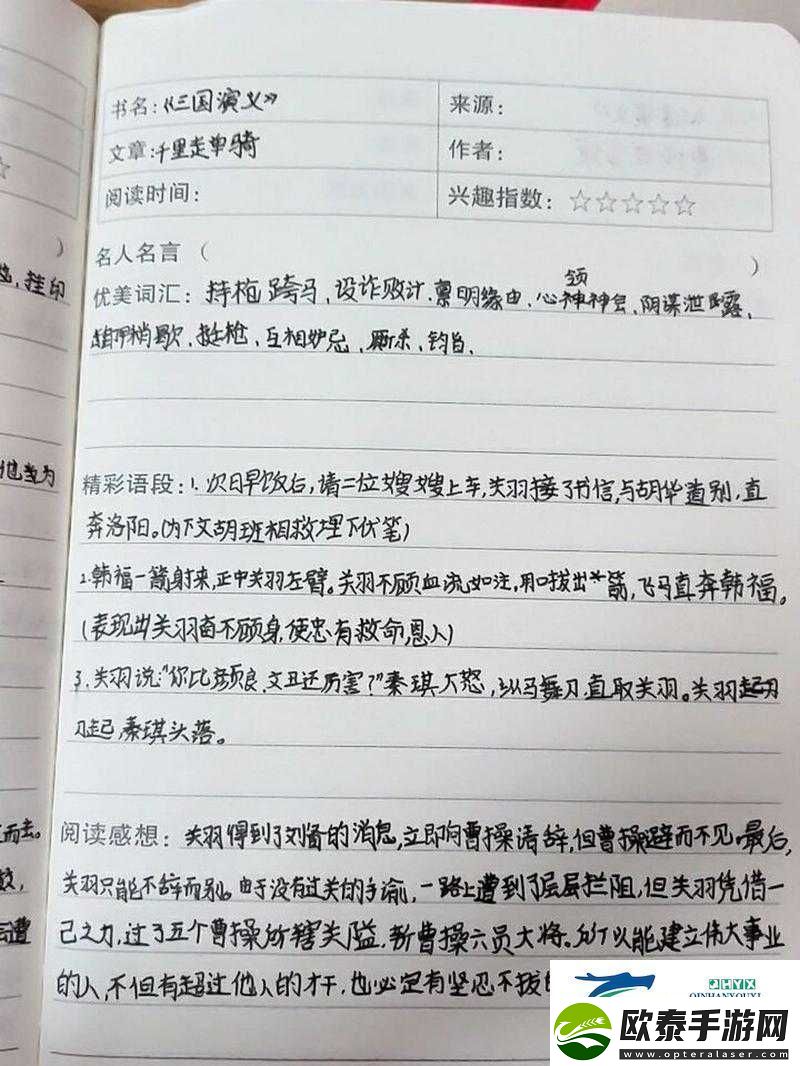 书名:《三国演义》 来源:
文章:千里走单骑 作者:
阅读时间: 兴趣指数: ☆☆☆☆☆
名人名言 ( )
领
优美词汇: 持枪跨马、设诈败计、禀明缘由、心神神会、阴谋泄露、
挺枪、互相妒忌、厮杀、钧旨、
精彩语段: 1. 次日早饭后,请二位嫂嫂上车,关羽接了书信,与胡华道别,直
奔洛阳。(为下文胡班相救埋下伏笔)
2. 韩福一箭射来,正中关羽左臂。关羽不顾血流如注,用口拔出箭,飞马直奔韩福。
(表现出关羽奋不顾身,使忠有救命恩人)
3. 关羽说:“你比颜良、文丑还厉害?”秦琪大怒,纵马舞刀,直取关羽。关羽起刃
刀起,秦琪头落。
阅读感想: 关羽得到了刘备的消息,立即向曹操请辞,但曹操避而不见。最后,
关羽只能不辞而别。由于没有过关的手谕,一路上遭到了层层拦阻,但关羽凭借一
己之力,过了五个曹操所辖关隘,斩曹操六员大将。所以能建立伟大事业
的人,不但有超过他人的才干,也必定有坚忍不拔的
挂印
他当为
而去。
遭
QHYX
QINHANYOUXI
欧泰手游网
www.opteralaser.com